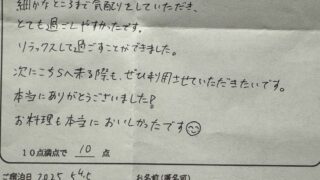 細かなところまで気配りをしていただき、
とても過ごしやすかったです。
リラックスして過ごすことができました。
次にこちらへ来る際も、ぜひ利用させていただきたいです。
本当にありがとうございました!
お料理も本当においしかったです
10点満点で 10 点
ご宿泊日 2025 5.4.5 お名前(匿名可)